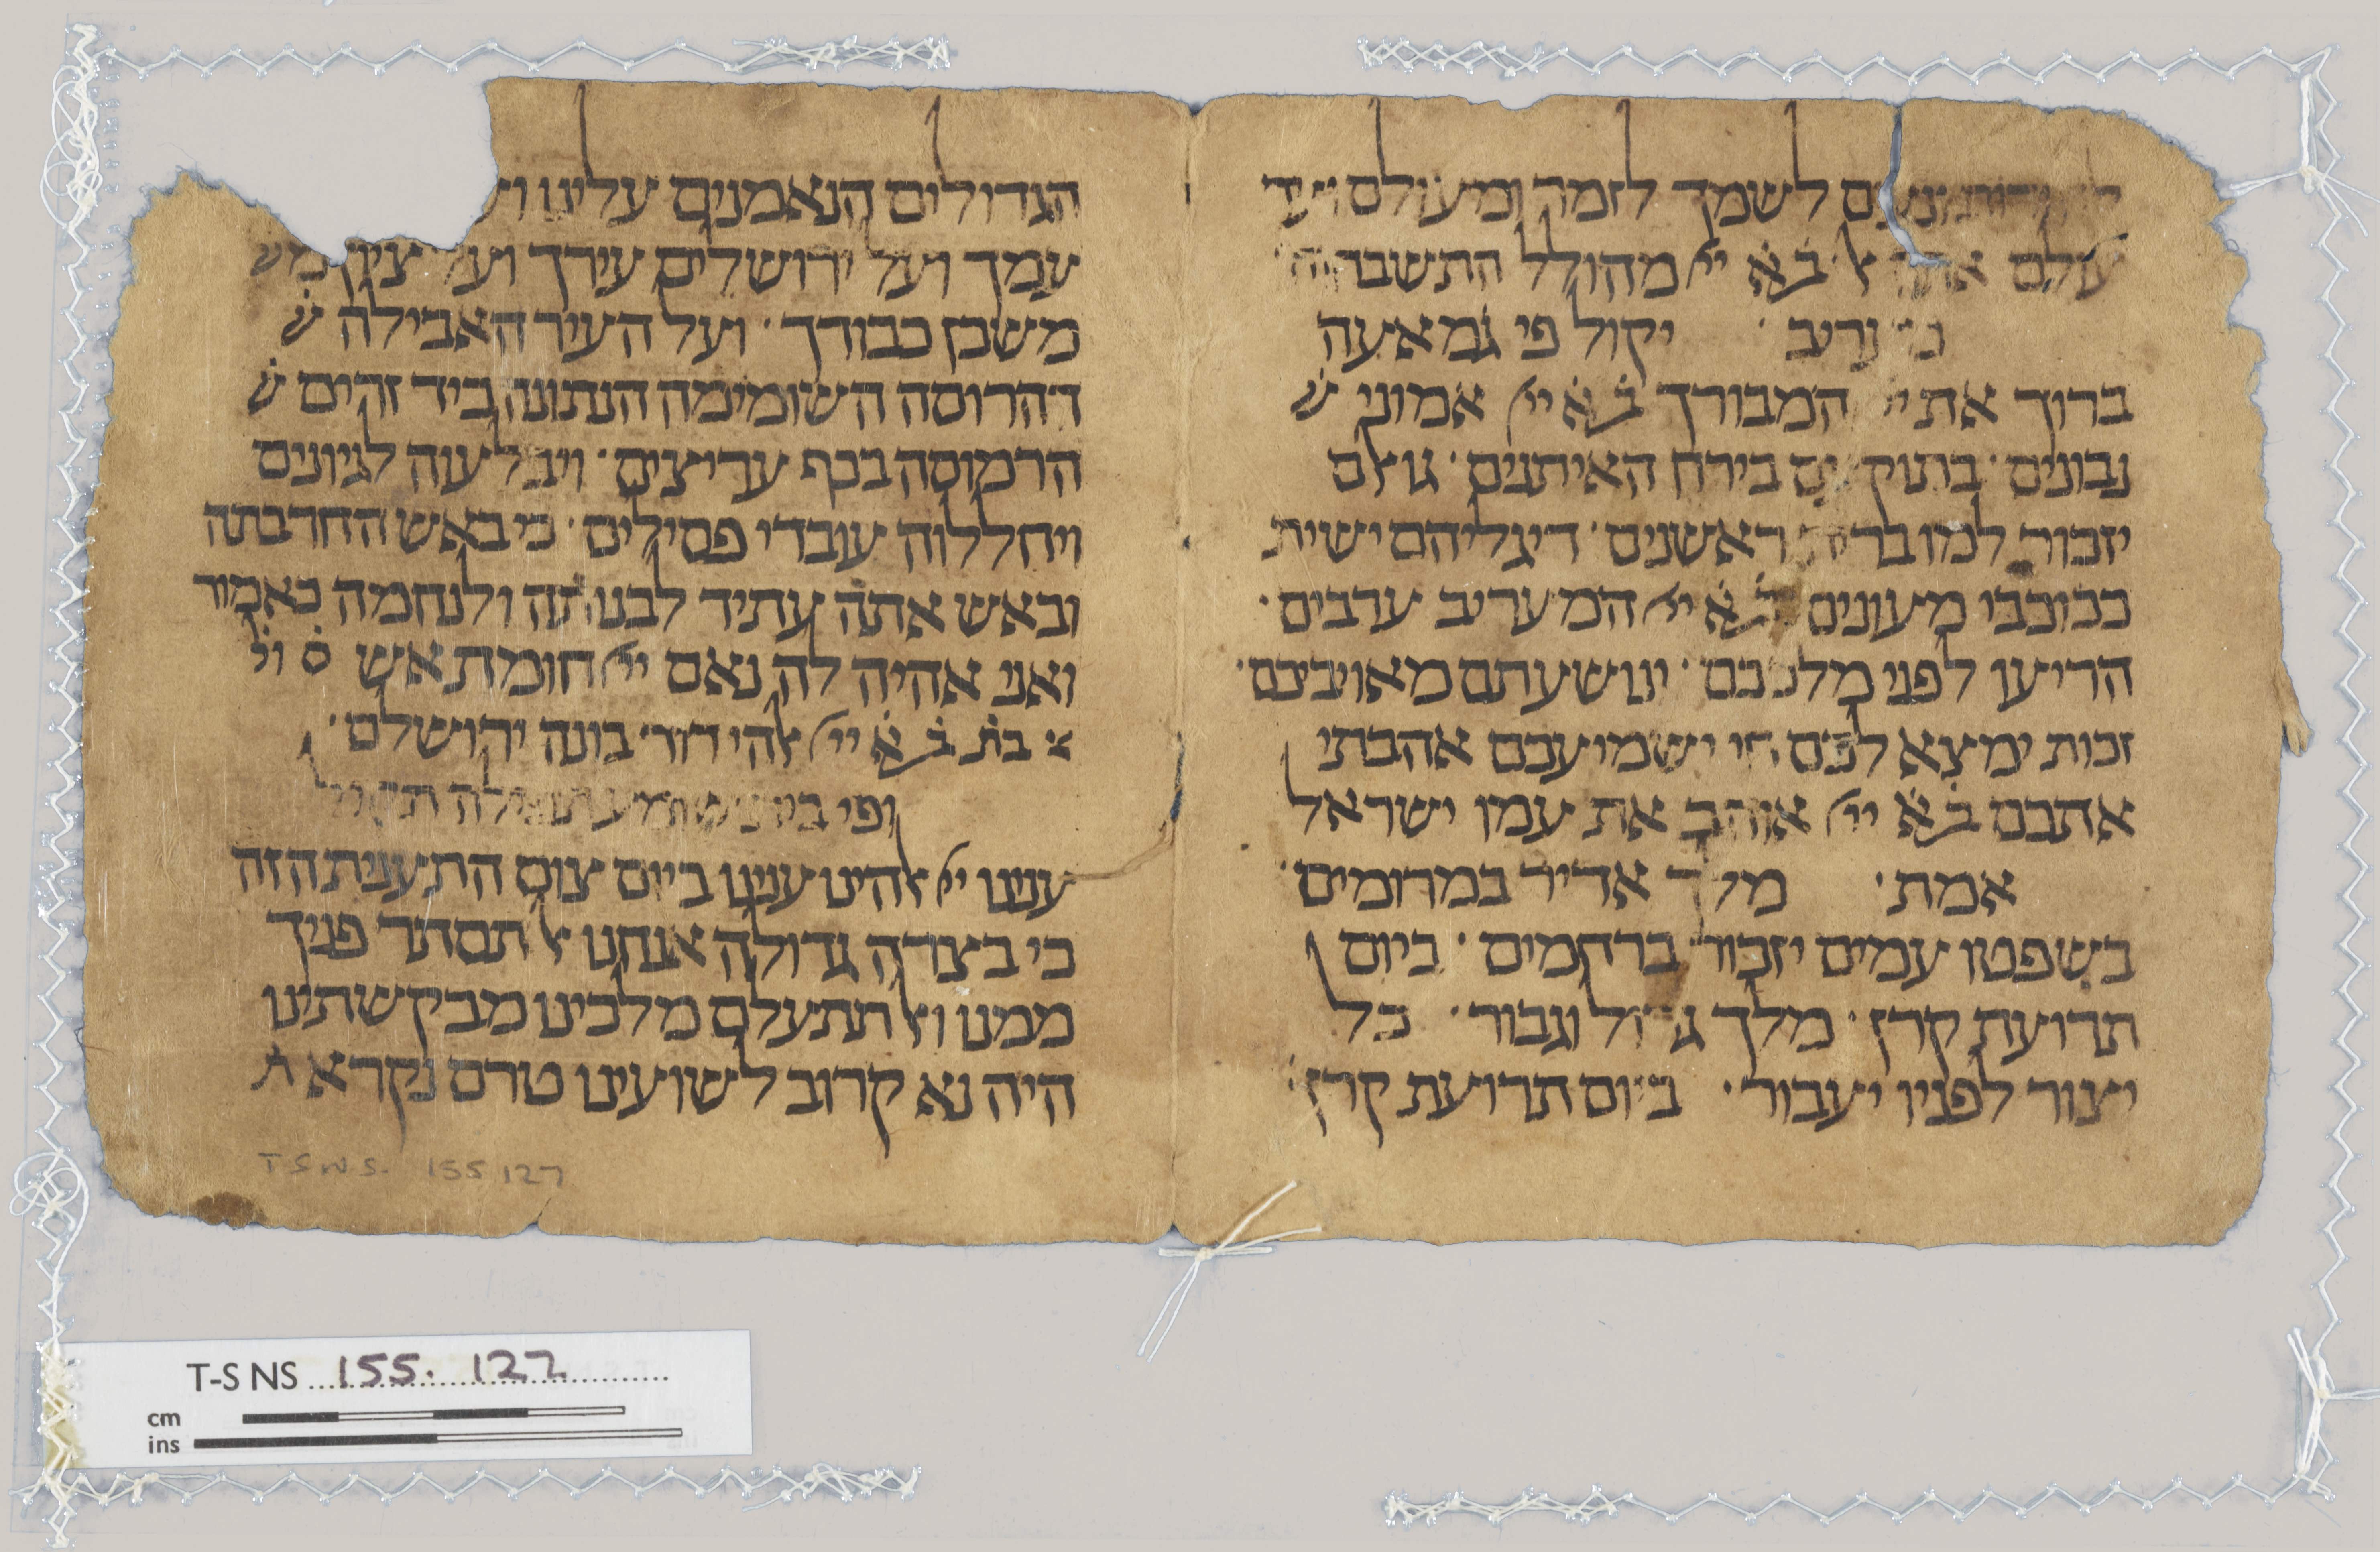 לשמך לזמר ומעולם ועד
עולם אתה ﭏ בא יי מהולל התשבחות
יקול פי גמאעה
ברוך את יי המבורך בא יי אמוני ש
נבונים · בתוקעם בירח האיתנים · גוﭏם
יזכור למו ברית ראשנים · דיגליהם ישית
ככוכבי מעונים בא יי המעריב ערבים ·
הריעו לפני מלככם · ונושעתם מאויביכם ·
זכות ימצא לכם חי ישמועכם אהבתי
אתכם בא יי אוהב את עמו ישראל
אמת · מלך אדיר במרומים ·
בשפטו עמים יזכור ברחמים · ביום
תרועת קרן · מלך גדול וגבור · כל
יצור לפניו יעבור · ביום תרועת קרן ·
הגדולים הנאמנים עלינו
עמך ועל ירושלים עירך ועל ציון
משכן כבודך · ועל העיר האבילה ש
ההרוסה השוממה הנתונה ביד זהים ש
הרמוסה בכף עריצים · ויבלעוה לגיונים
ויחללוה עובדי פסילים · כי באש החרבתה
ובאש אתה עתיד לבנותה ולנחמה כאמור
ואני אהיה לה נאם יי חומת אש ס ול
בת בא יי ﭏהי דוד בונה ירושלם ·
ופי
עננו יי ﭏהינו עננו ביום צום התענית הזה
כי בצרה גדולה אנחנו ﭏ תסתר פניך
ממנו וﭏ תתעלם מלכינו מבקשתינו
היה נא קרוב לשועינו טרם נקרא ת
T S N S. 155 127
T-S NS 155. 127
cm
ins